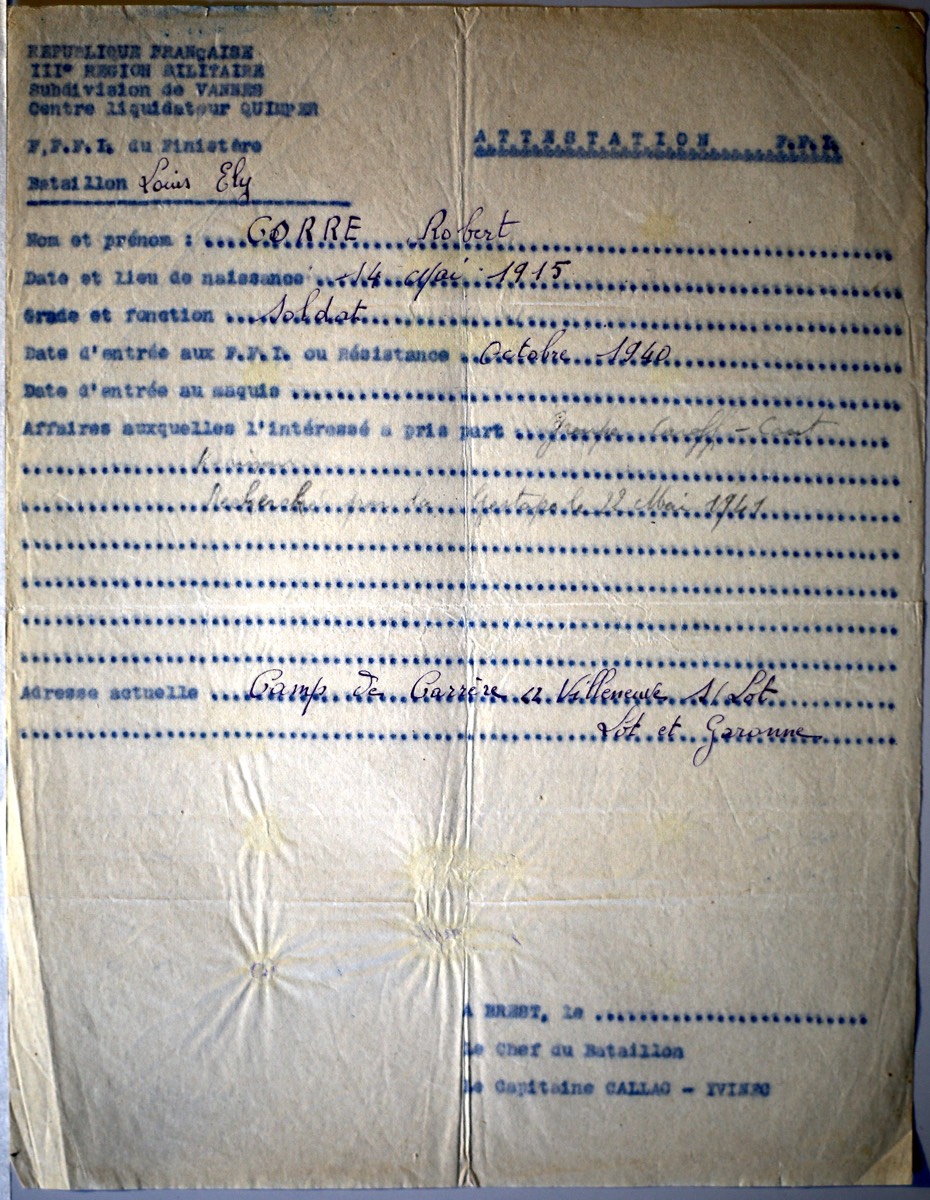 REPUBLIQUE FRANÇAISE
IIIº REGION MILITAIRE
Subdivision de VANNES
Centre liquidateur QUIMPER
F.F.F.I. du Finistére
ATTESTATION F.F.I.
Bataillon Louis Ely
Nom et prénom : CORRE Robert
Date et lieu de naissance 14 Mai 1915
Grade et fonction Soldat
Date d'entrée aux F.F.I. ou Résistance Octobre 1940
Date d'entrée au maquis
Affaires auxquelles l'intéressé a pris part Groupe
Recherché par la Gestapo le 22 Mai 1941
Adresse actuelle Camp de Carrère à Villeneuve s/ Lot
Lot et Garonne
A BREST, le
Le Chef du Bataillon
Le Capitaine CALLAC - YVINEC